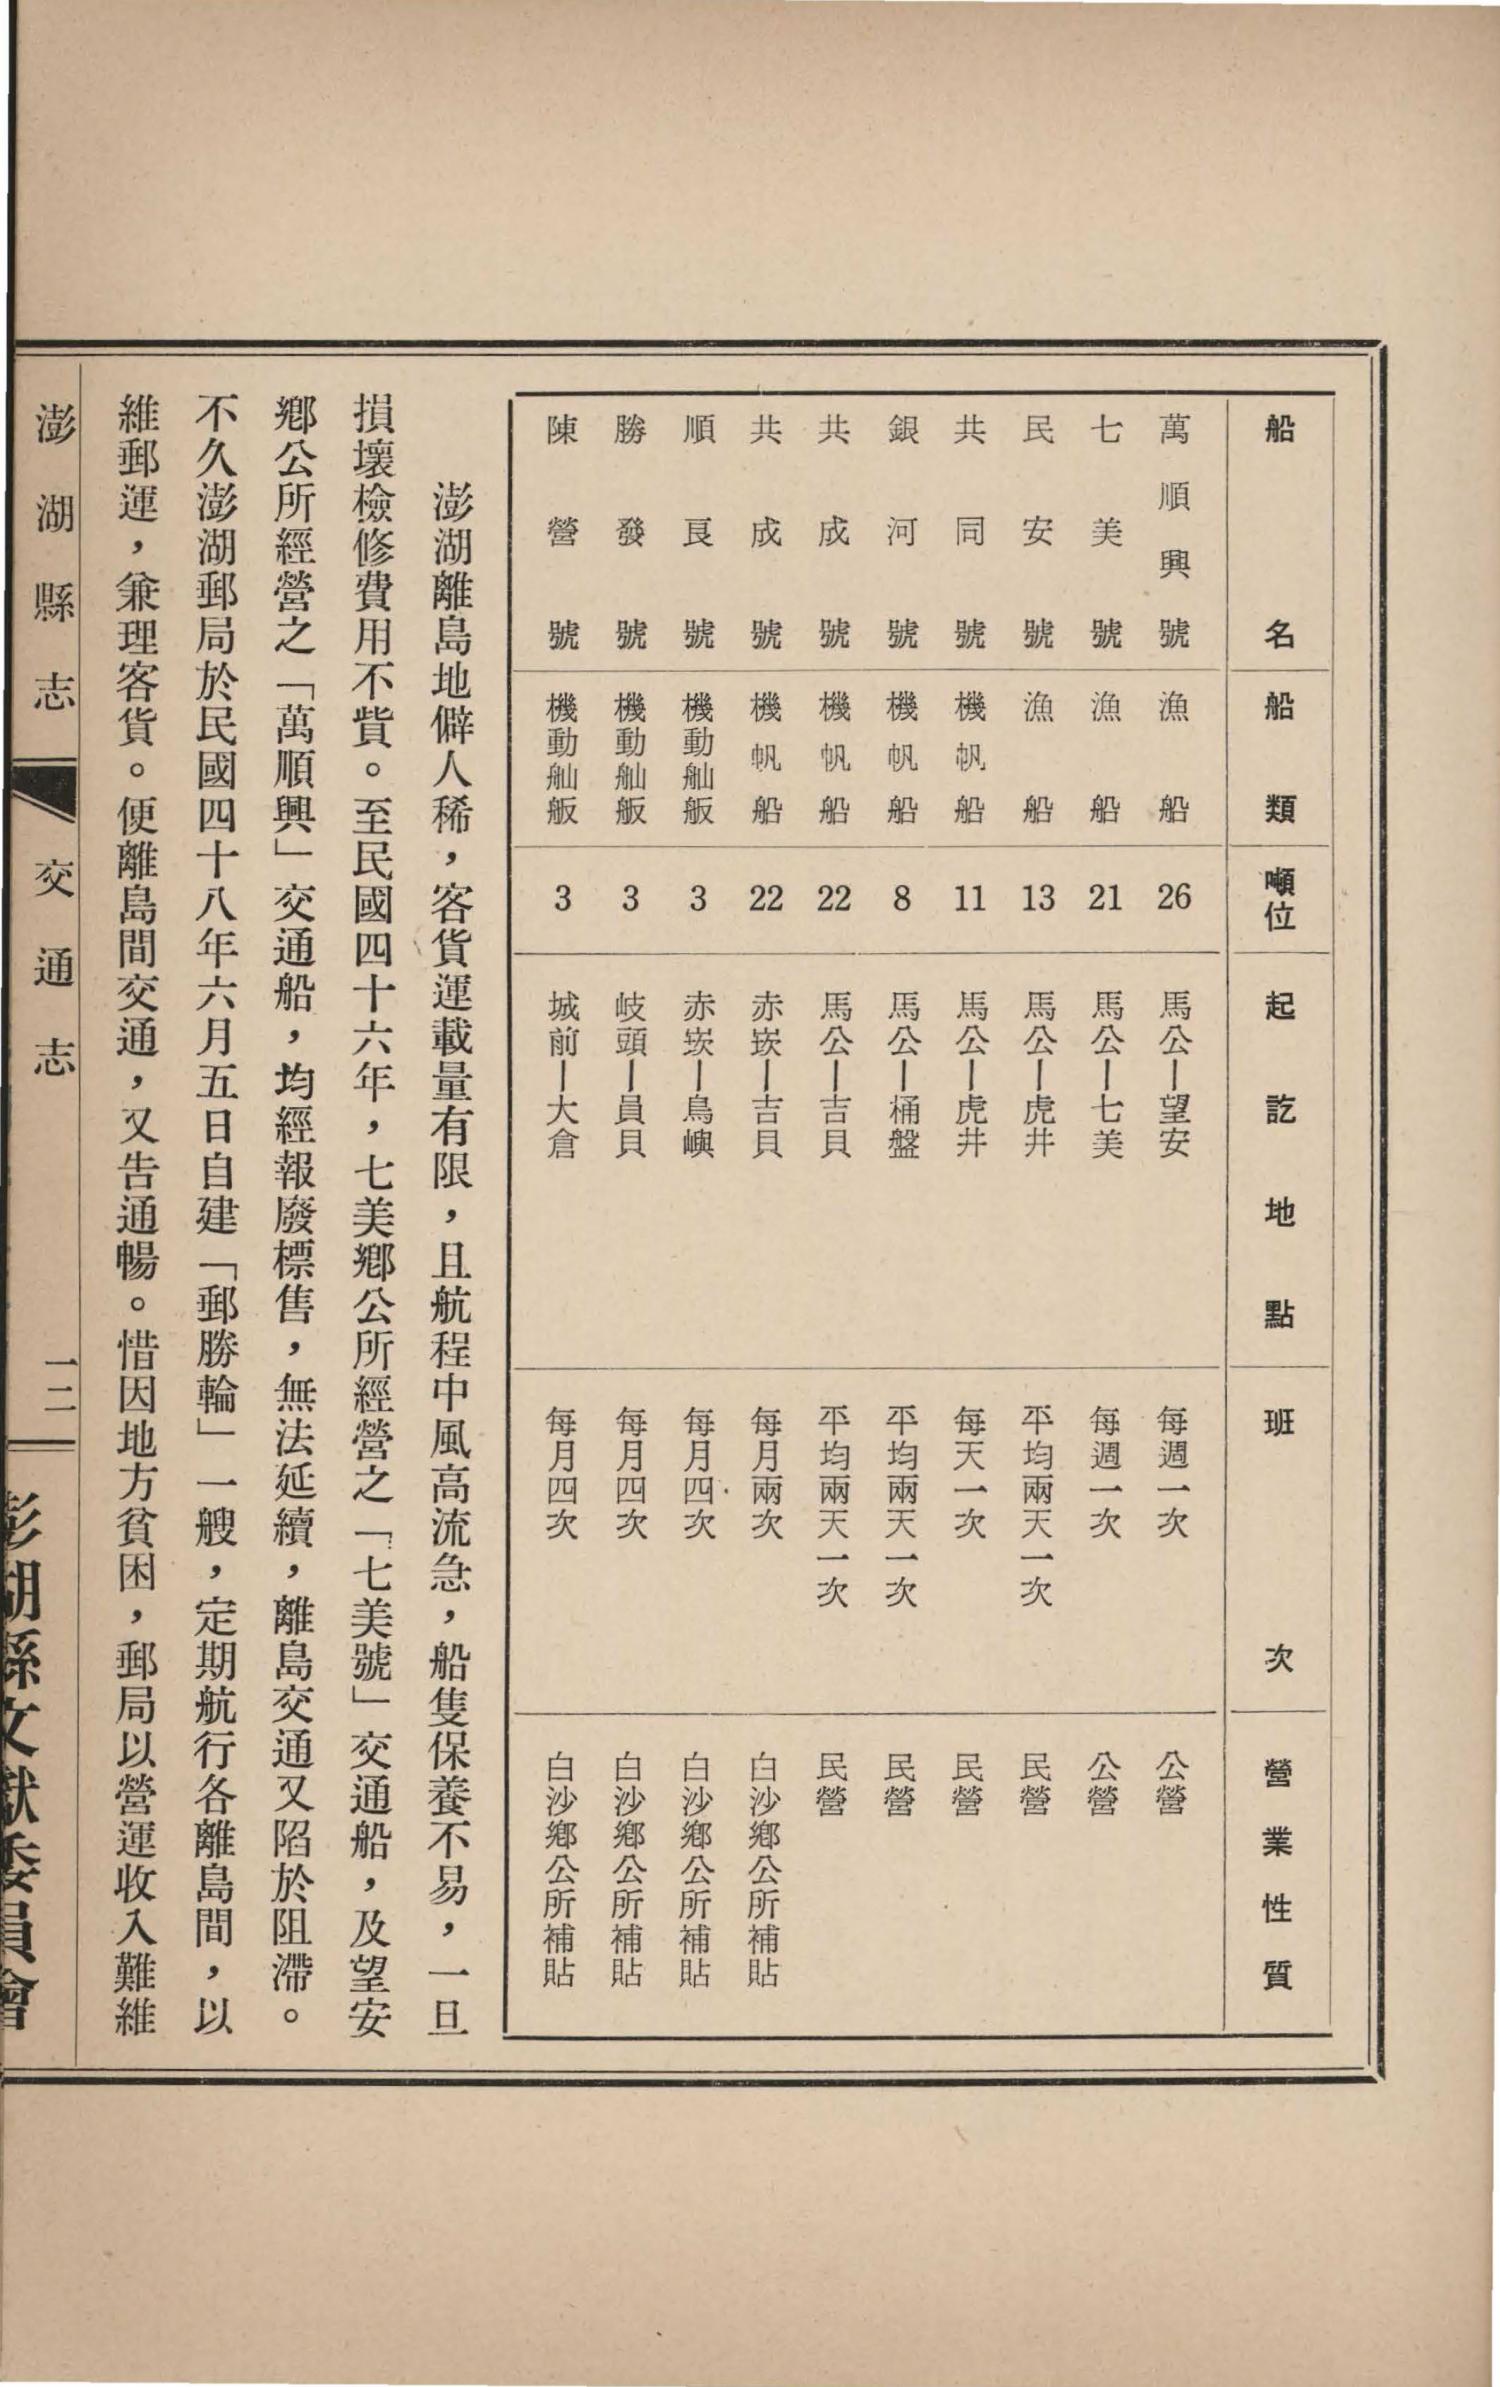 船名 船類 噸位 起訖地點 班次 營業性質
萬順興號 漁船 26 馬公—望安 每週一次 公營
七美號 漁船 21 馬公—七美 每週一次 公營
民安號 漁船 13 馬公—虎井 平均兩天一次 民營
共同號 機帆船 11 馬公—虎井 每天一次 民營
銀河號 機帆船 8 馬公—桶盤 平均兩天一次 民營
共成號 機帆船 22 馬公—吉貝 平均兩天一次 民營
共成號 機帆船 22 赤崁—吉貝 每月兩次 白沙鄉公所補貼
順良號 機動舢舨 3 赤崁—鳥嶼 每月四次 白沙鄉公所補貼
勝發號 機動舢舨 3 岐頭—員貝 每月四次 白沙鄉公所補貼
陳營號 機動舢舨 3 城前—大倉 每月四次 白沙鄉公所補貼
澎湖離島地僻人稀，客貨運載量有限，且航程中風高流急，船隻保養不易，一旦
損壞檢修費用不貲。至民國四十六年，七美鄉公所經營之「七美號」交通船，及望安
鄉公所經營之「萬順興」交通船，均經報廢標售，無法延續，離島交通又陷於阻滯。
不久澎湖郵局於民國四十八年六月五日自建「郵勝輪」一艘，定期航行各離島間，以
維郵運，兼理客貨。便離島間交通，又告通暢。惜因地方貧困，郵局以營運收入難維
澎湖縣志 交通志 一二
澎湖縣文獻委員會